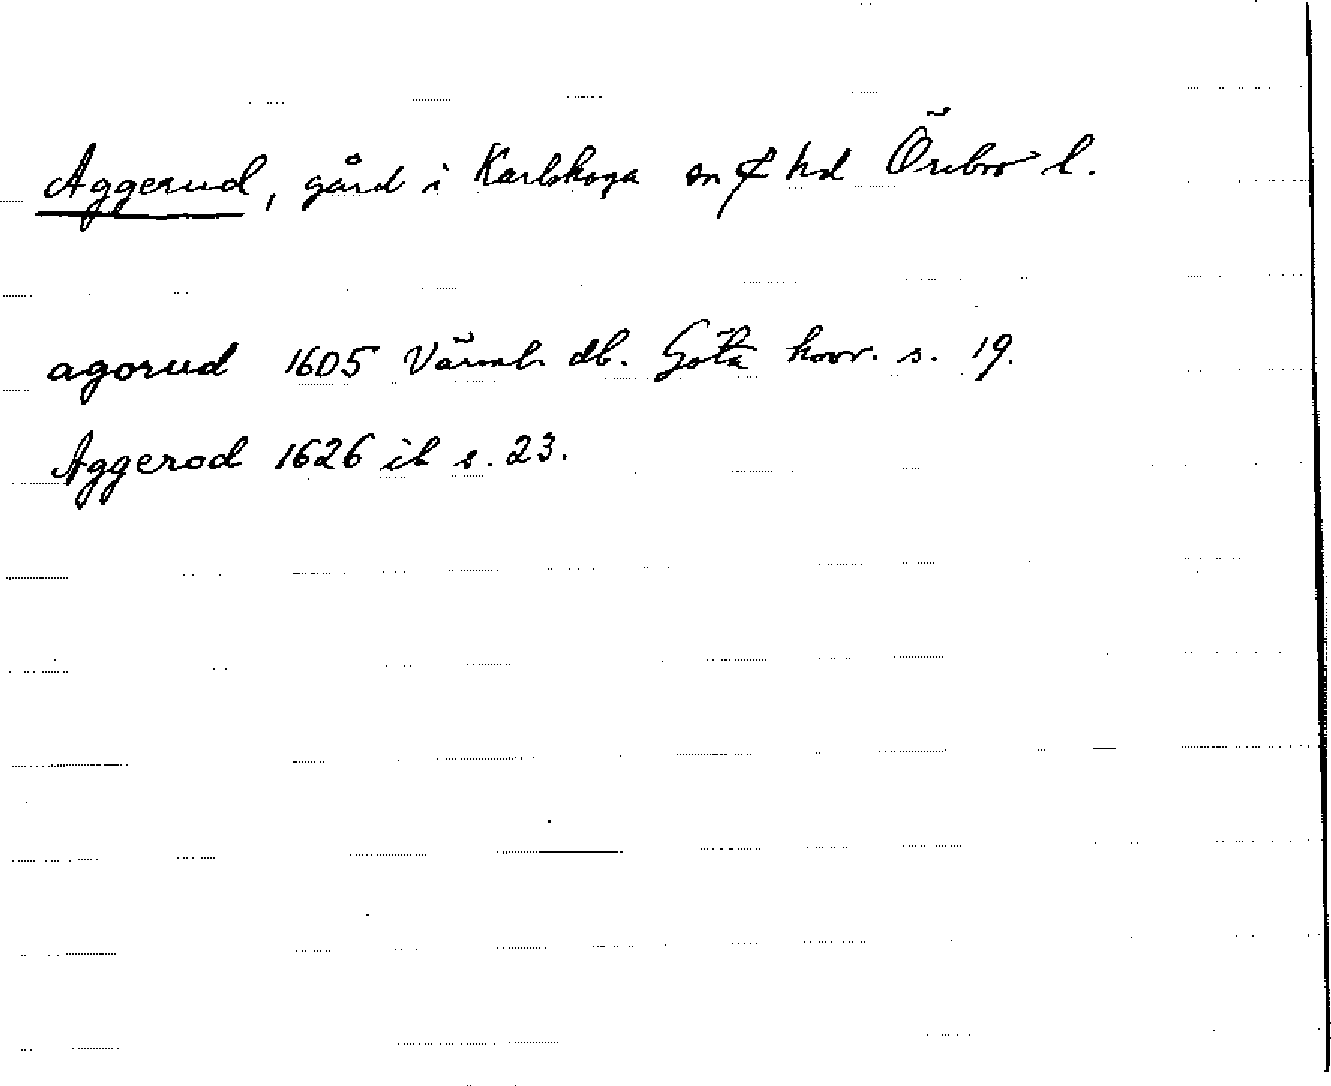 Aggerud, gård i Karlskoga sn & hd Örebro l.
agorud 1605 Värml. db. Göta hovr. s. 19.
Aggerod 1626 ib s. 23.